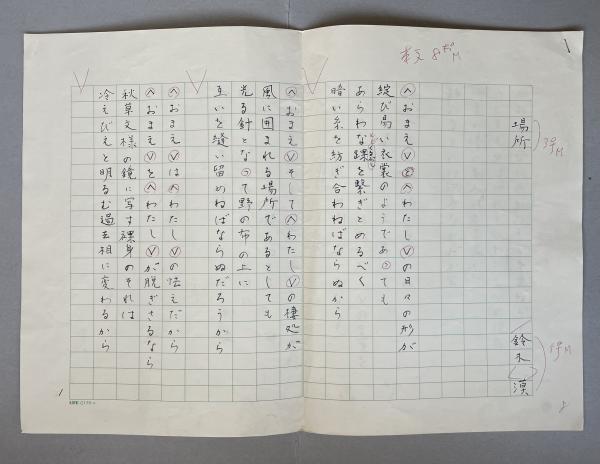 場所
鈴木漠
〈おまえ〉と〈わたし〉の日々の形が
綻び易い衣裳のようであっても
あらわな踝を繋ぎとめるべく
暗い糸を紡ぎ合わねばならぬから
〈おまえ〉そして〈わたし〉の棲処が
風に囲まれる場所であるとしても
光る針となって野の布の上に
互いを縫い留めねばならぬだろうから
〈おまえ〉は〈わたし〉の怯えだから
〈おまえ〉を〈わたし〉が脱ぎさるなら
秋草文様の鏡に写す裸身のそれは
冷えびえと明るむ過去相に変わるから